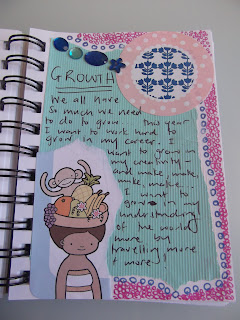 GROWTH
We all have
so much we need
to do to grow. This year
I want to work hard to
grow in my career, I
want to grow in
my creativity -
and make, make,
make, make. I
want to
grow in my
understanding
of the world
more by
travelling more
& more!